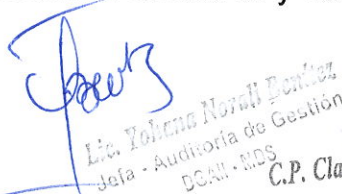 Lic. Yohana Noralí Benítez
Jefa - Auditoría de Gestión
DGAII - MDS
C.P. Cla